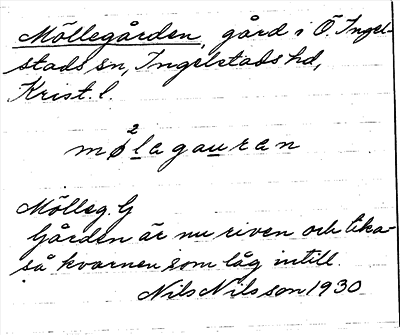 Möllegården, gård i Ö. Ingel-
stads sn, Ingelstads hd,
Krist. l.
mø²lagauran
Mölleg. G
Gården är nu riven och lika-
så kvarnen som låg intill.
Nils Nilsson 1930